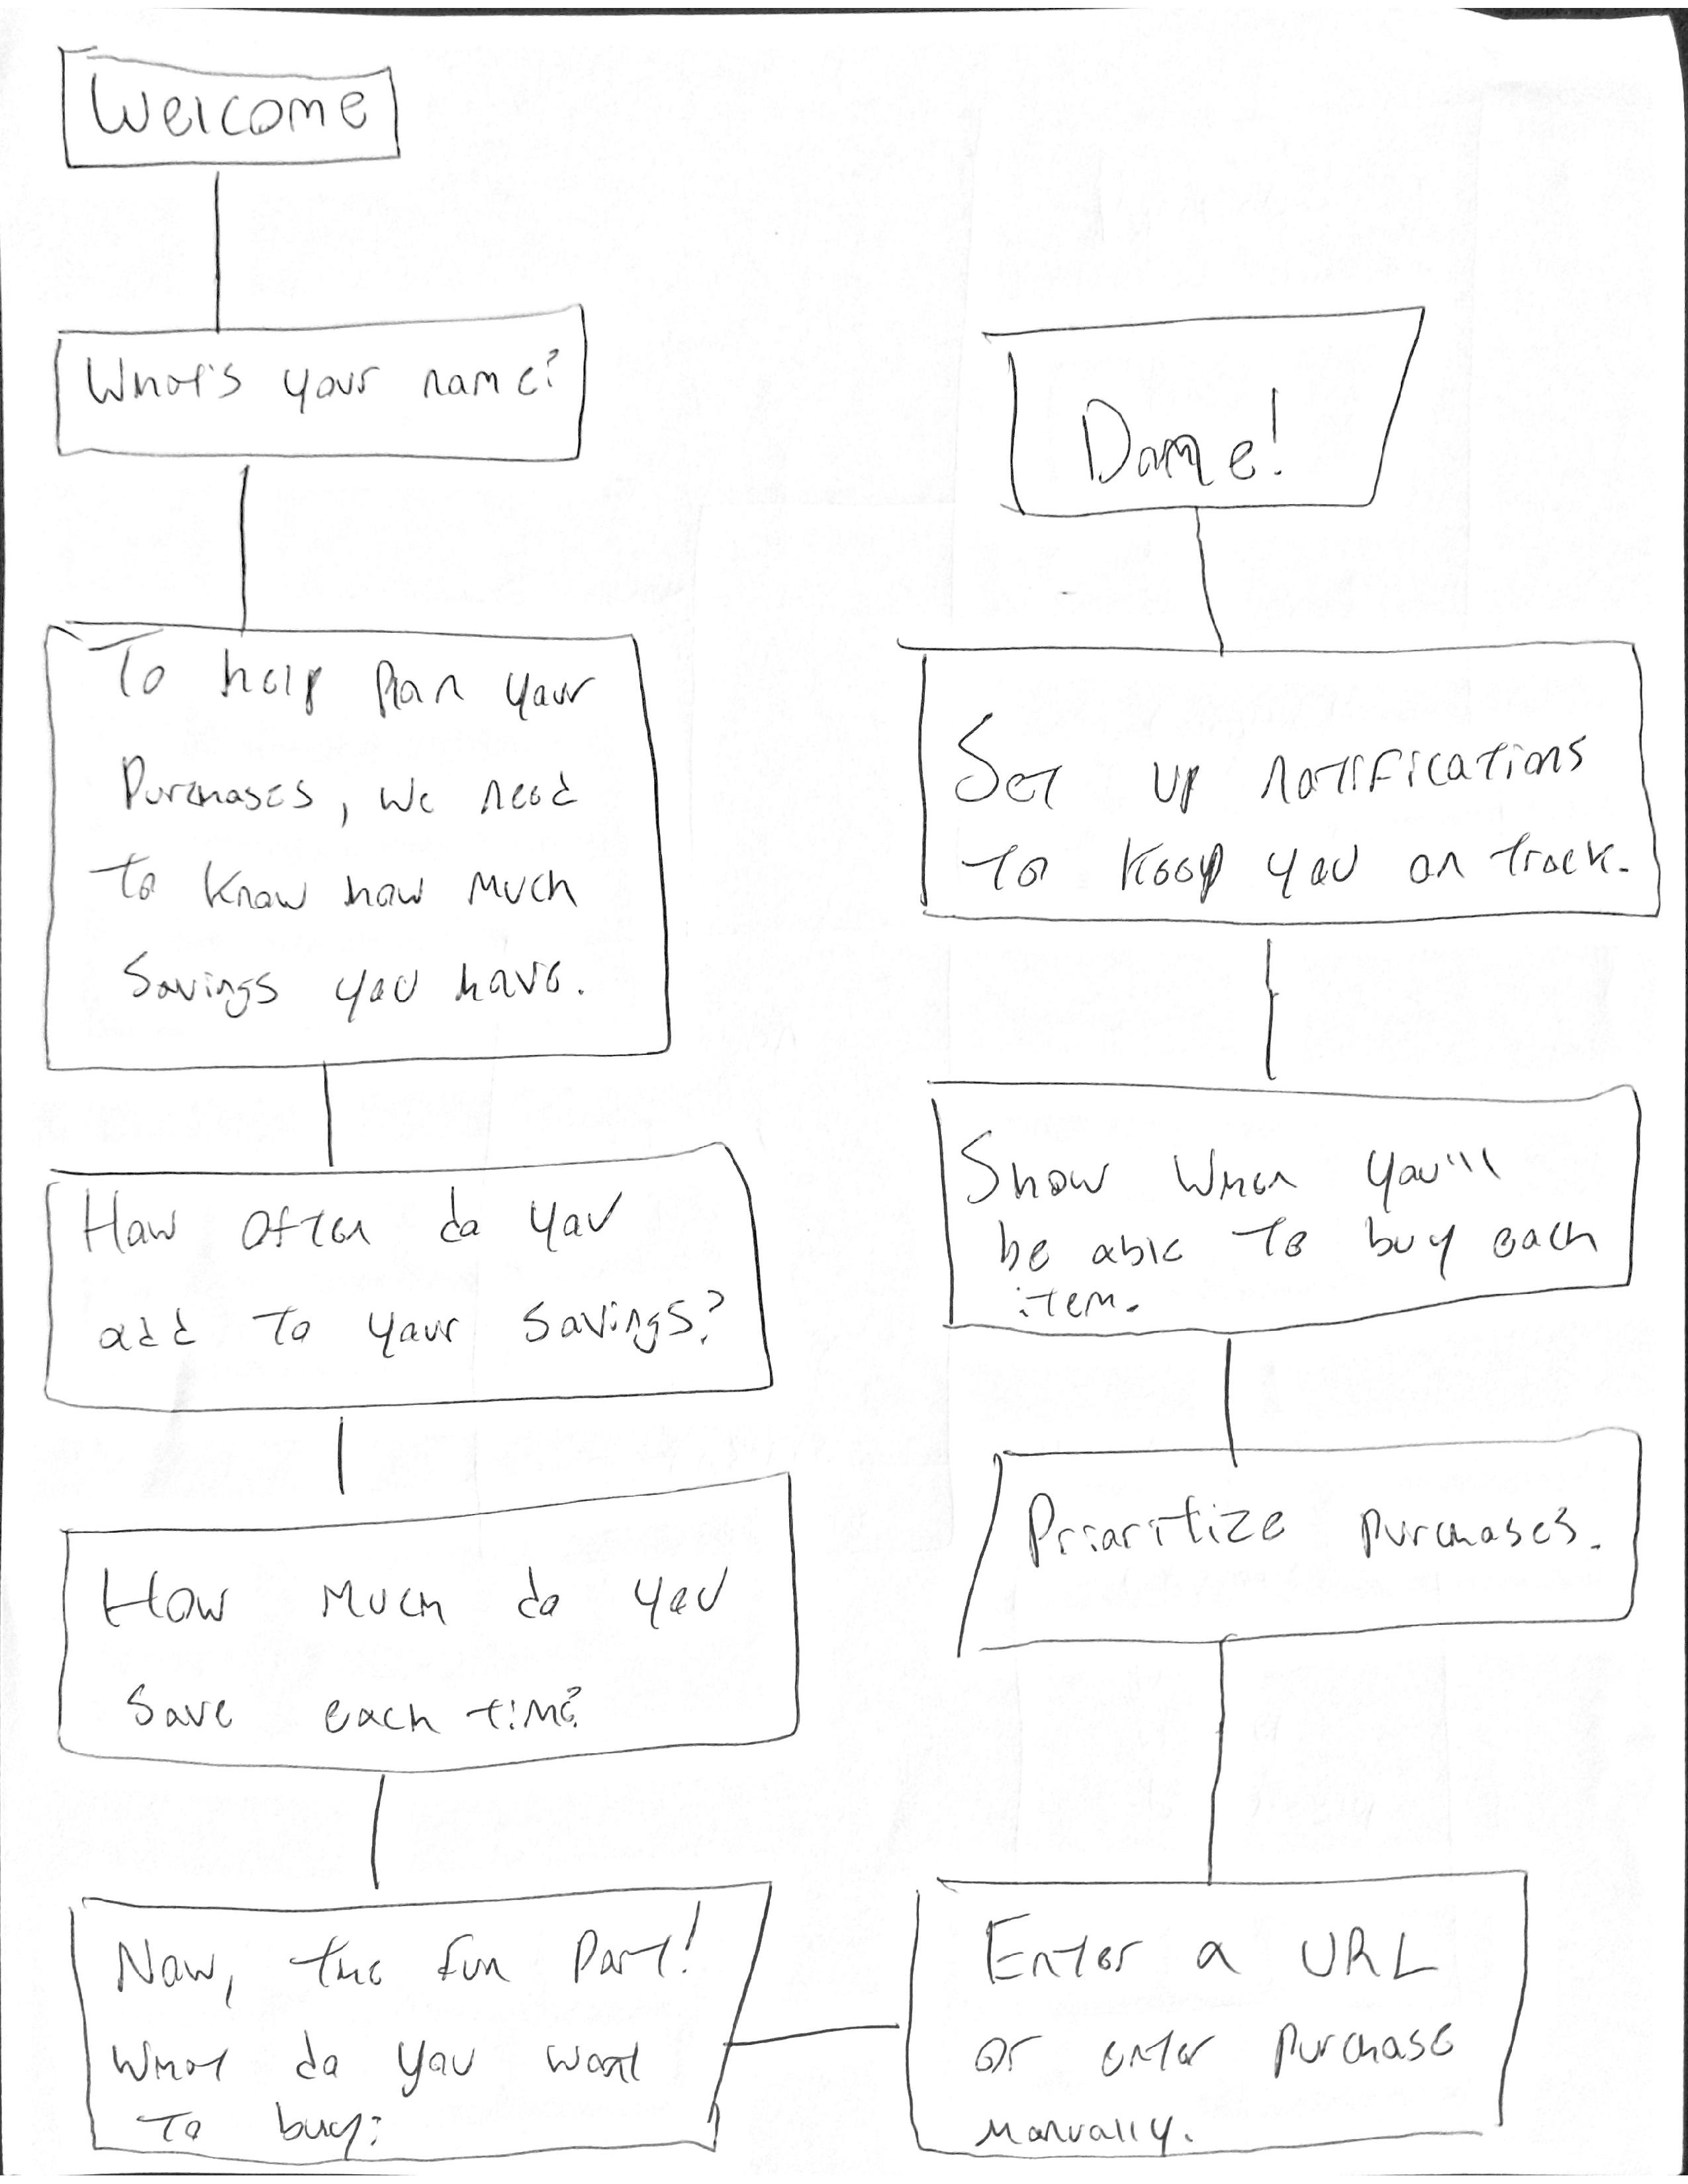 Welcome
What's your name?
To help plan your
purchases, we need
to know how much
savings you have.
How often do you
add to your savings?
How much do you
save each time?
Now, the fun part!
What do you want
to buy?
Enter a URL
or enter purchase
manually.
Prioritize purchases.
Show when you'll
be able to buy each
item.
Set up notifications
to keep you on track.
Done!